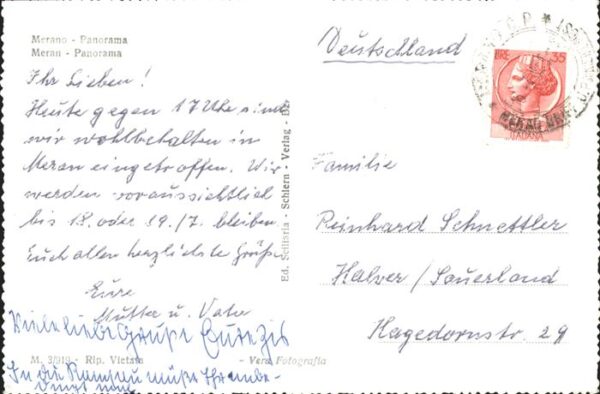 Merano - Panorama
Meran - Panorama
Deutschland
LIRE 35
Ihr Lieben!
Heute gegen 17 Uhr sind
wir wohlbehalten in
Meran eingetroffen. Wir
werden voraussichtlich
bis 18. oder 19./7. bleiben.
Euch allen herzlichste Grüße
Eure
Mutter u. Vater
Viele liebe Grüße Eure
In die Ramsau müßt Ihr
M. 3/919 - Rip. Vietata
- Vera Fotografia
Ed. Sciliaria - Schlern - Verlag -
Familie
Reinhard Schnettler
Halver / Sauerland
Hagedornstr 29